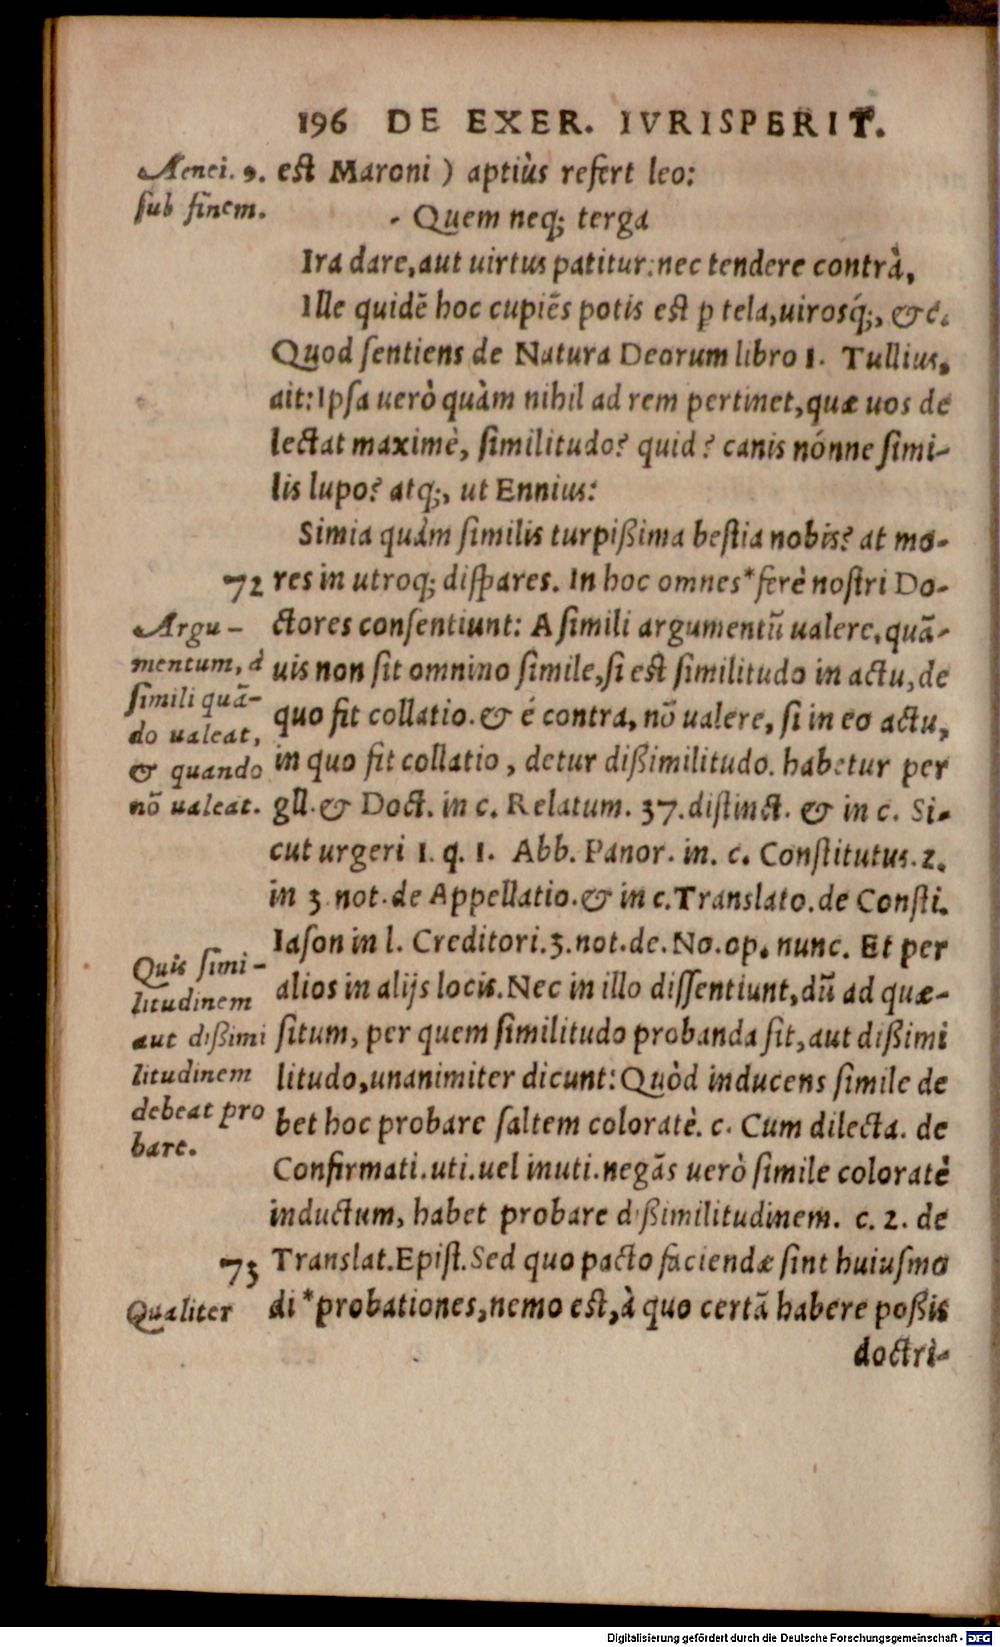 196 DE EXER. IVRISPERIT.
Aenei. 9.
sub finem.
est Maroni) aptiùs refert leo:
- Quem neq; terga
Ira dare, aut uirtus patitur: nec tendere contrà,
Ille quidē hoc cupiēs potis est ꝑ tela, uirosq́;, &c.
Quod sentiens de Natura Deorum libro 1. Tullius,
ait: Ipsa uerò quàm nihil ad rem pertinet, quæ uos de
lectat maximè, similitudo? quid? canis nónne simi-
lis lupo? atq;, ut Ennius:
Simia quàm similis turpißima bestia nobis? at mo-
72 res in utroq; dispares. In hoc omnes* ferè nostri Do-
ctores consentiunt: A simili argumentū ualere, quā-
uis non sit omnino simile, si est similitudo in actu, de
quo fit collatio. & é contra, nō ualere, si in eo actu,
in quo fit collatio, detur dißimilitudo. habetur per
gll. & Doct. in c. Relatum. 37. distinct. & in c. Si-
cut urgeri 1. q. 1. Abb. Panor. in. c. Constitutus. 2.
in 3 not. de Appellatio. & in c. Translato. de Consti.
Iason in l. Creditori. 3. not. de. No. op. nunc. Et per
alios in alijs locis. Nec in illo dissentiunt, dū ad quæ-
situm, per quem similitudo probanda sit, aut dißimi
litudo, unanimiter dicunt: Quòd inducens simile de
bet hoc probare saltem coloratè. c. Cum dilecta. de
Confirmati. uti. uel inuti. negās uerò simile coloratè
inductum, habet probare dißimilitudinem. c. 2. de
73 Translat. Epist. Sed quo pacto faciendæ sint huiusmo
di *probationes, nemo est, à quo certā habere poßis
doctri-
Argu-
mentum, à
simili quā-
do ualeat,
& quando
nō ualeat.
Quis simi-
litudinem
aut dißimi
litudinem
debeat pro
bare.
Qualiter
Digitalisierung gefördert durch die Deutsche Forschungsgemeinschaft - DFG